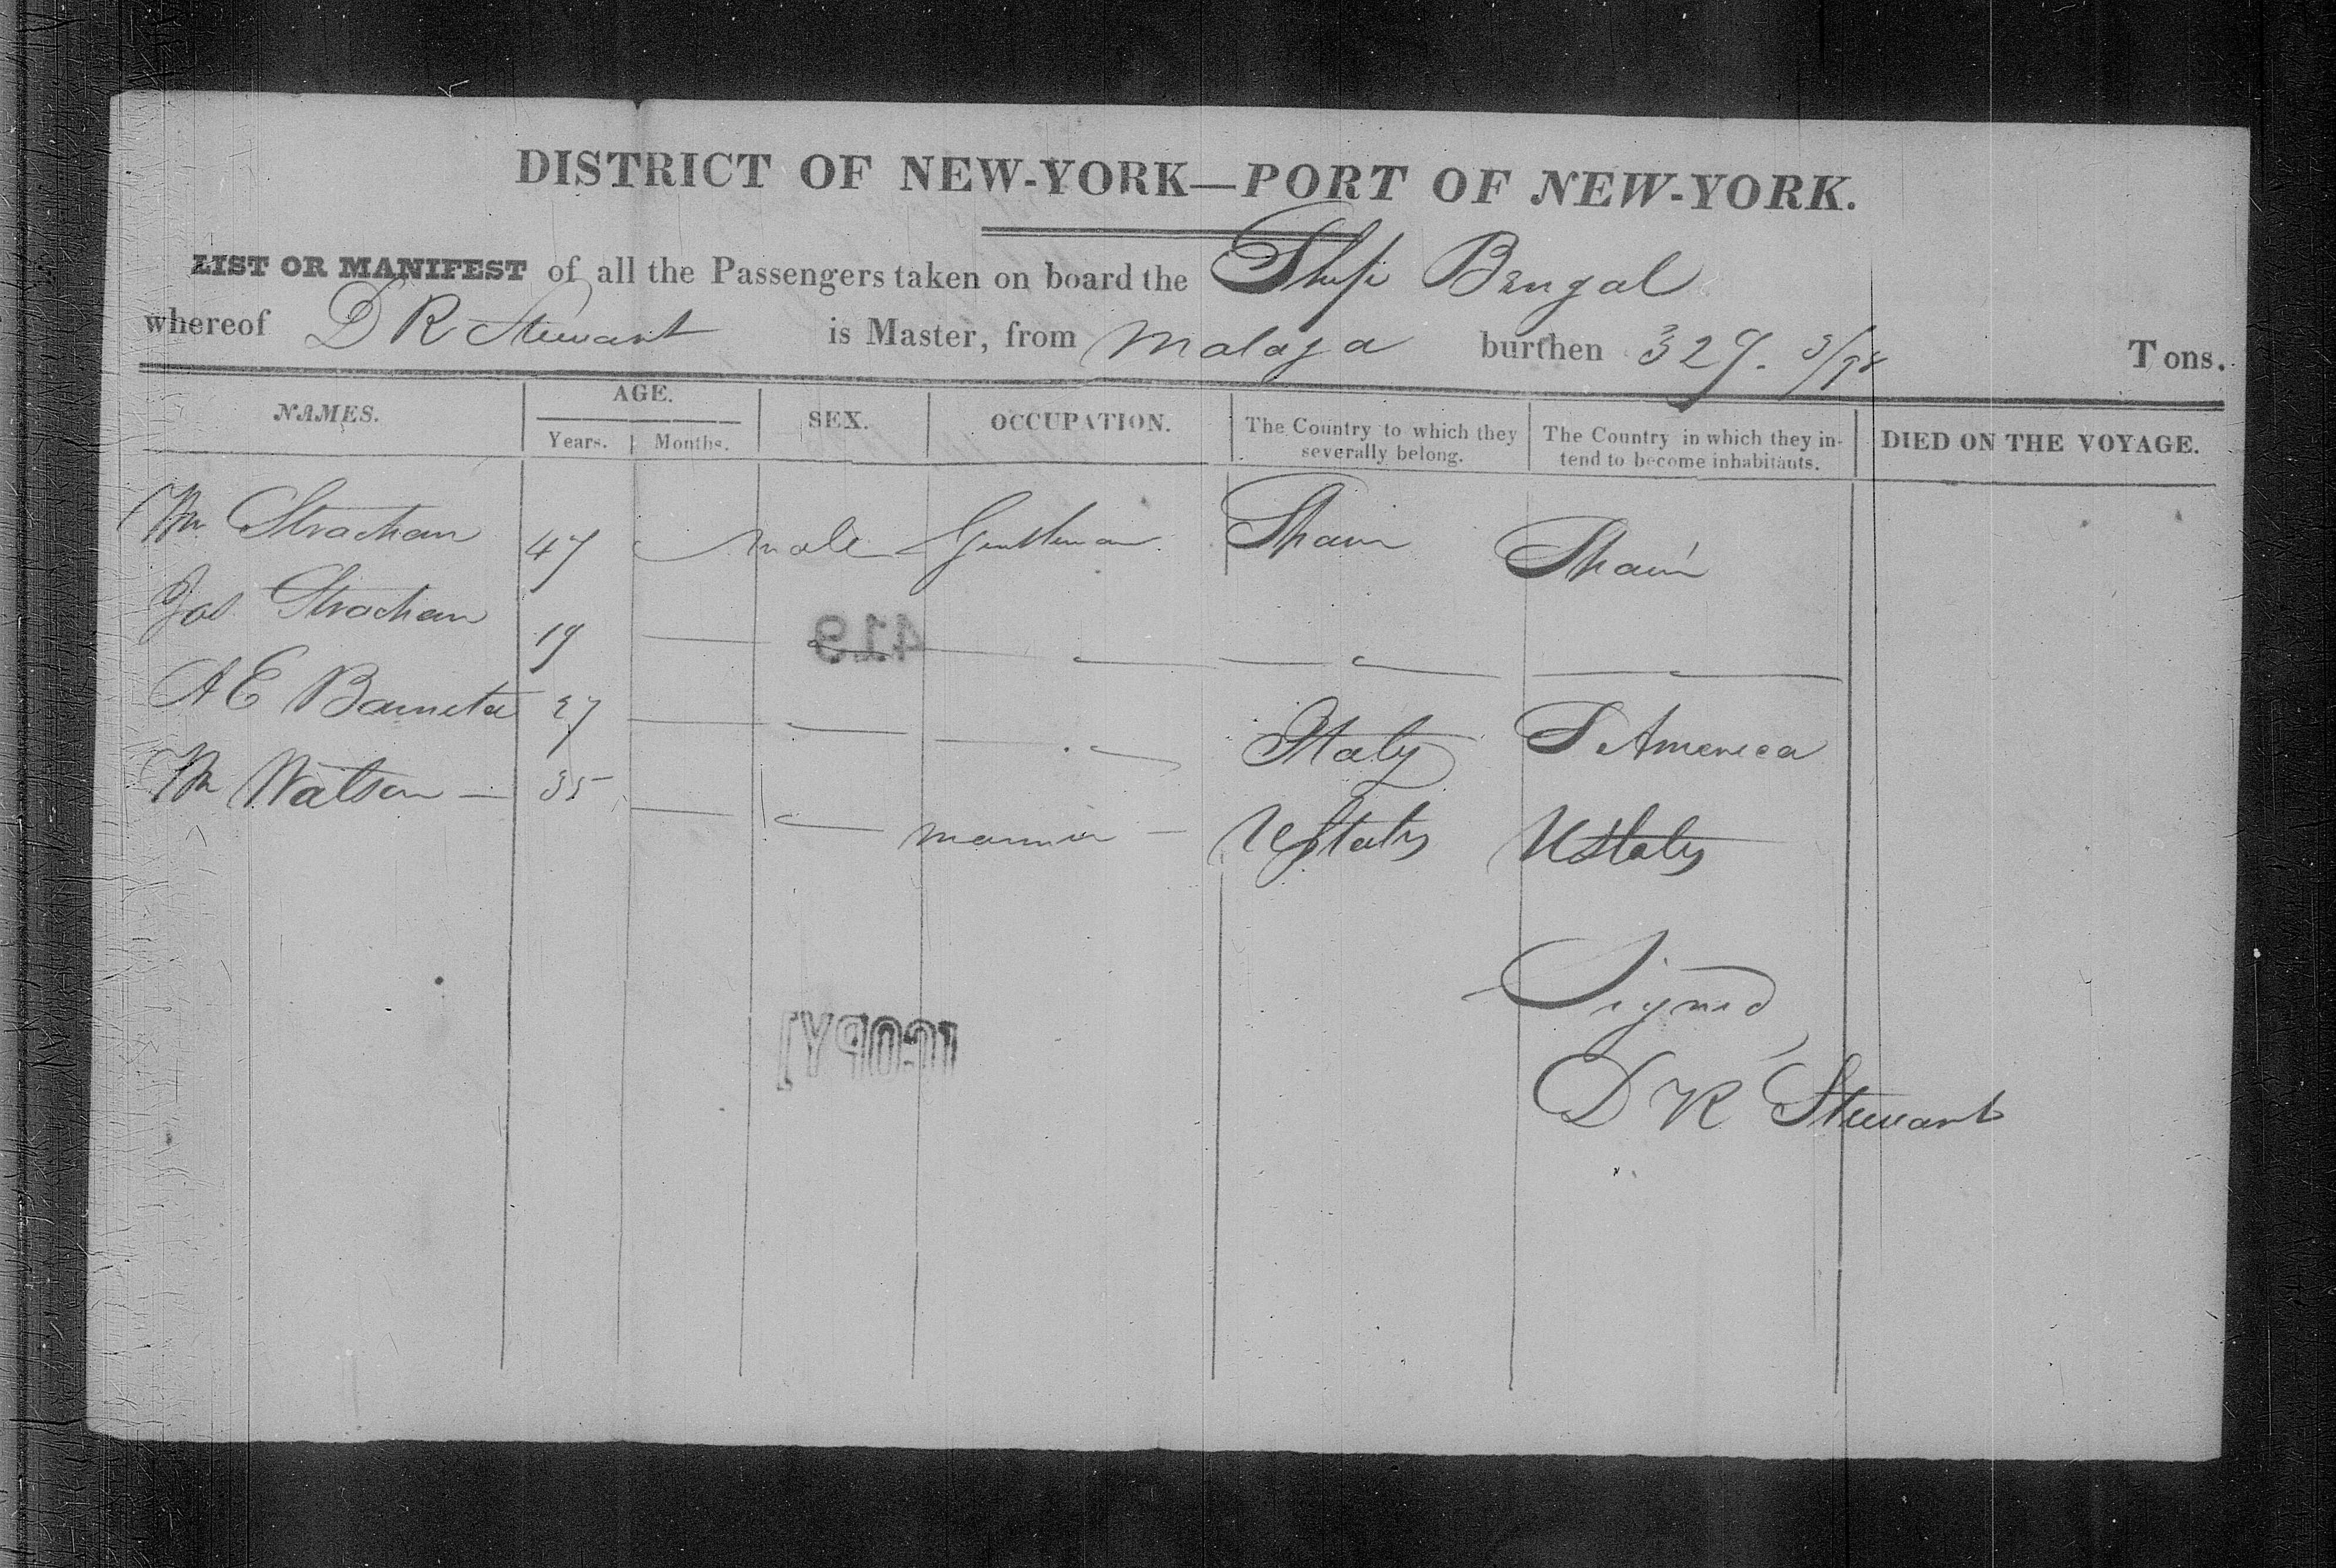 DISTRICT OF NEW-YORK—PORT OF NEW-YORK.
LIST OR MANIFEST of all the Passengers taken on board the Ship Bengal
whereof D R Stewart is Master, from Malaga burthen 327. Tons.
NAMES. AGE. SEX. OCCUPATION. The Country to which they severally belong. The Country in which they intend to become inhabitants. DIED ON THE VOYAGE.
Years. Months.
Mr Strachan 47 Male Gentleman Spain Spain
Jas Strachan 19
419
A E 27 Italy S America
Mr Watson 35 Mariner U States U States
Signed
[COPY]
D R Stewart